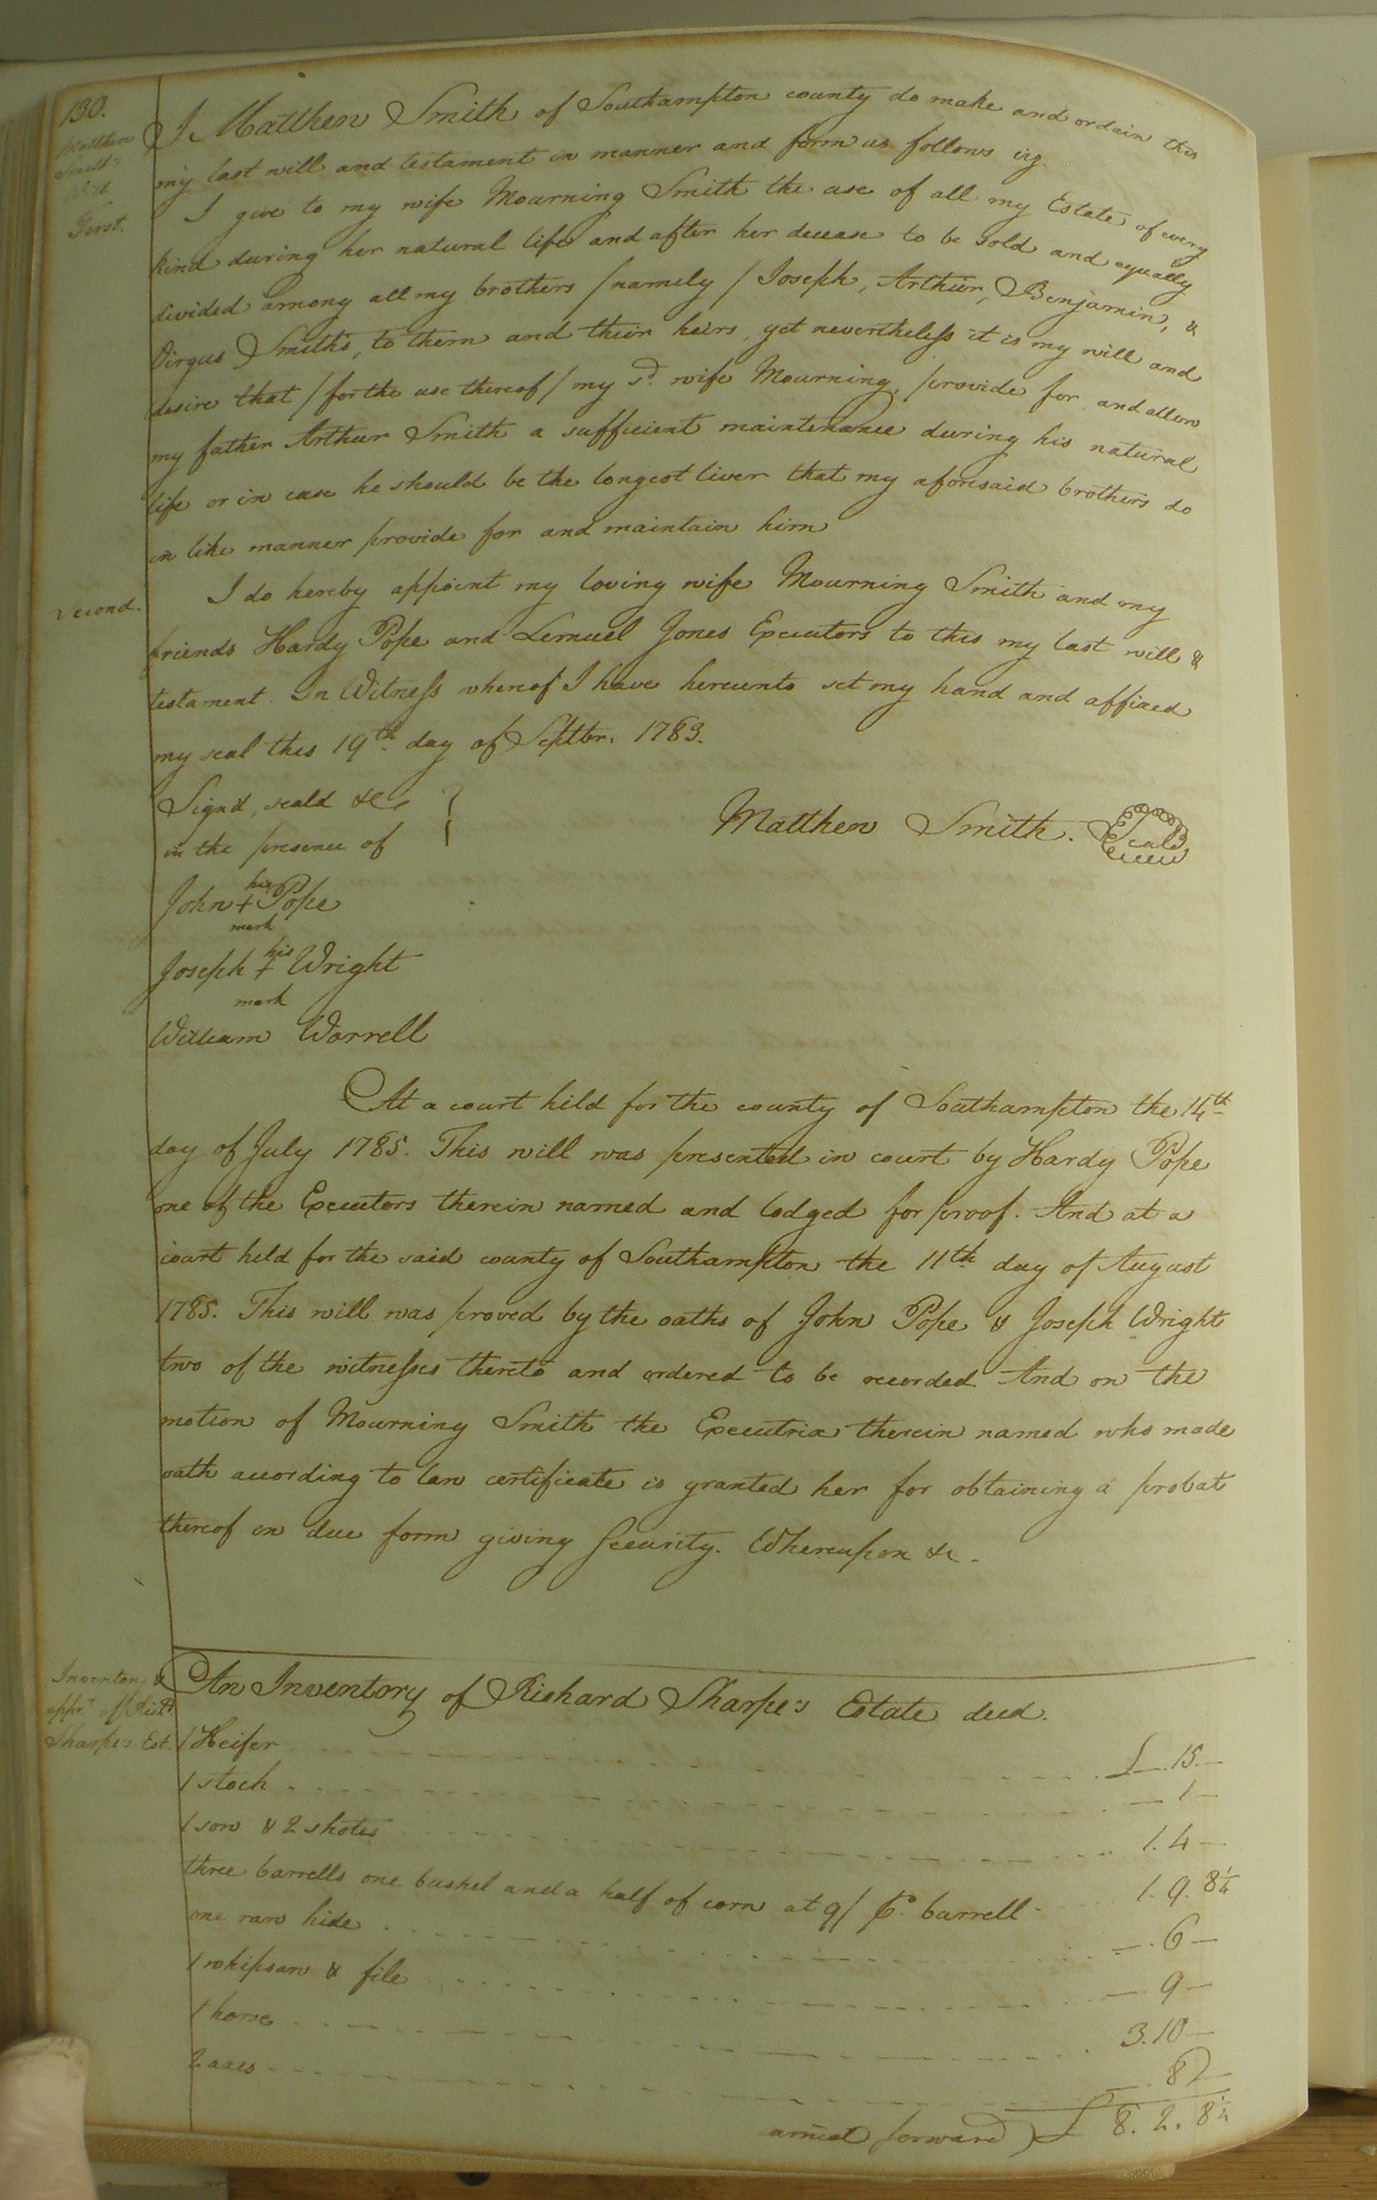 130.
Matthew
Smith's
Will
First.
I Matthew Smith of Southampton county do make and ordain this
my last will and testament in manner and form as follows viz.
I give to my wife Mourning Smith the use of all my Estate of every
kind during her natural life and after her decease to be sold and equally
divided among all my brothers /namely/ Joseph, Arthur, Benjamin, &
Virgus Smiths, to them and their heirs, yet nevertheless it is my will and
desire that /for the use thereof/ my sd. wife Mourning, provide for and allow
my father Arthur Smith a sufficient maintenance during his natural
life or in case he should be the longest liver that my aforesaid brothers do
in like manner provide for and maintain him
Second.
I do hereby appoint my loving wife Mourning Smith and my
friends Hardy Pope and Lemuel Jones Executors to this my last will &
testament. In Witness whereof I have hereunto set my hand and affixed
my seal this 19th. day of Septbr. 1783.
Signd, seald &c
in the presence of
Matthew Smith. Seal
his
John + Pope
mark
his
Joseph + Wright
mark
William Worrell
At a court held for the county of Southampton the 14th
day of July 1785. This will was presented in court by Hardy Pope
one of the Executors therein named and lodged for proof. And at a
court held for the said county of Southampton the 11th day of August
1785. This will was proved by the oaths of John Pope & Joseph Wright
two of the witnesses thereto and ordered to be recorded. And on the
motion of Mourning Smith the Executrix therein named who made
oath according to law certificate is granted her for obtaining a probat
thereof in due form giving Security. Whereupon &c.
Inventory &
appr. of Richd
Sharpe's Est.
An Inventory of Richard Sharpe's Estate decd.
1 Heifer £ — . 15. —
1 stock — 1 —
1 sow & 2 shotes 1. 4 —
three barrells one bushel and a half of corn at 9/ Pr. barrell 1. 9. 8¼
one raw hide — . 6 —
1 whipsaw & file — 9 —
1 horse 3. 10 —
2 axes — 8 —
carried forward £ 8. 2. 8¼